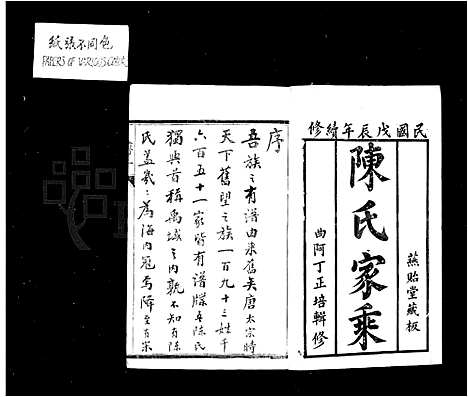 紙張不同色
PAPERS OF VARIOUS COLOR
民國戊辰年續修
燕貽堂藏板
陳氏家乘
曲阿丁正培輯修
序
吾族之有譜由來舊矣唐太宗時
天下舊望之族一百九十三姓千
六百五十一家皆有譜牒吾陳氏
獨與首稱禹域之內孰不知有陳
氏蓋幾幾為海內冠焉降至有宋